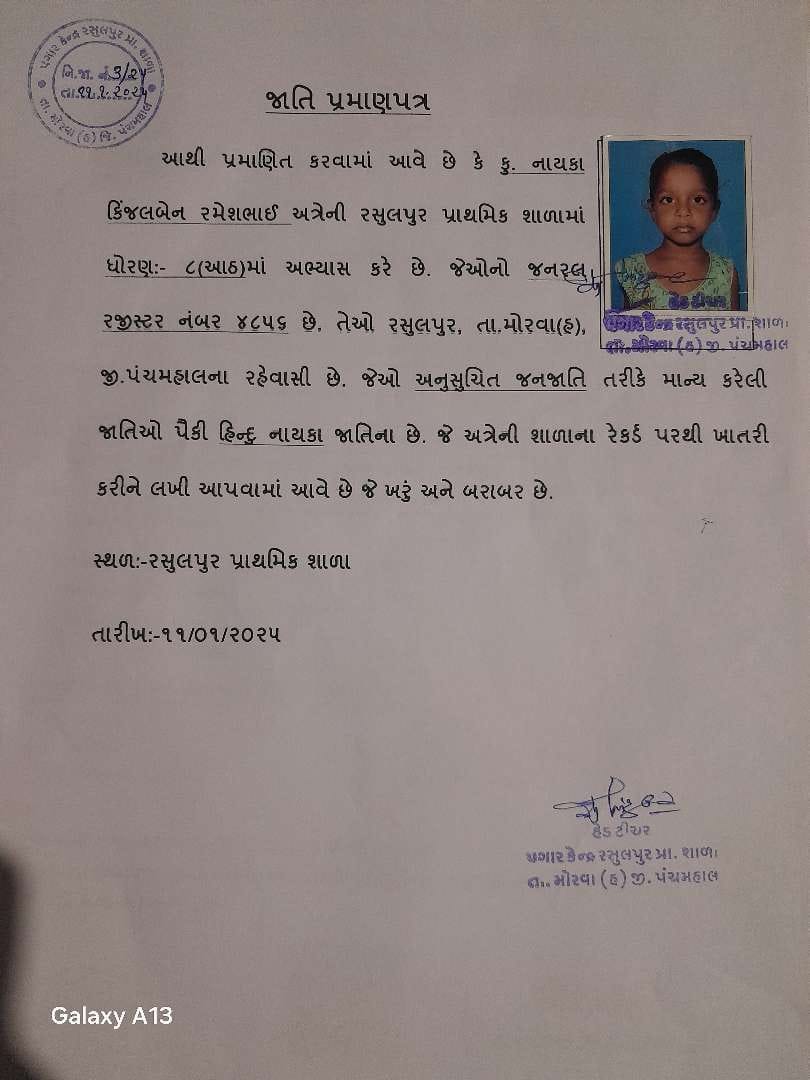 પગાર કેન્દ્ર રસુલપુર પ્રા. શાળા
નિ.જા. નં.3/24
તા.૧૧.૧.૨૦૨૫
તા. મોરવા (હ) જિ. પંચમહાલ
જાતિ પ્રમાણપત્ર
આથી પ્રમાણિત કરવામાં આવે છે કે કુ. નાયકા
કિંજલબેન રમેશભાઈ અત્રેની રસુલપુર પ્રાથમિક શાળામાં
ધોરણ:- ૮(આઠ)માં અભ્યાસ કરે છે. જેઓનો જનરલ
રજીસ્ટર નંબર ૪૮૫૬ છે. તેઓ રસુલપુર, તા.મોરવા(હ),
જી.પંચમહાલના રહેવાસી છે. જેઓ અનુસુચિત જનજાતિ તરીકે માન્ય કરેલી
જાતિઓ પૈકી હિન્દુ નાયકા જાતિના છે. જે અત્રેની શાળાના રેકર્ડ પરથી ખાતરી
કરીને લખી આપવામાં આવે છે જે ખરું અને બરાબર છે.
હેડ ટીચર
પગાર કેન્દ્ર રસુલપુર પ્રા. શાળા
તા. મોરવા (હ) જી. પંચમહાલ
સ્થળ:-રસુલપુર પ્રાથમિક શાળા
તારીખ:-૧૧/૦૧/૨૦૨૫
હેડ ટીચર
પગાર કેન્દ્ર રસુલપુર પ્રા. શાળા
તા. મોરવા (હ) જી. પંચમહાલ
Galaxy A13